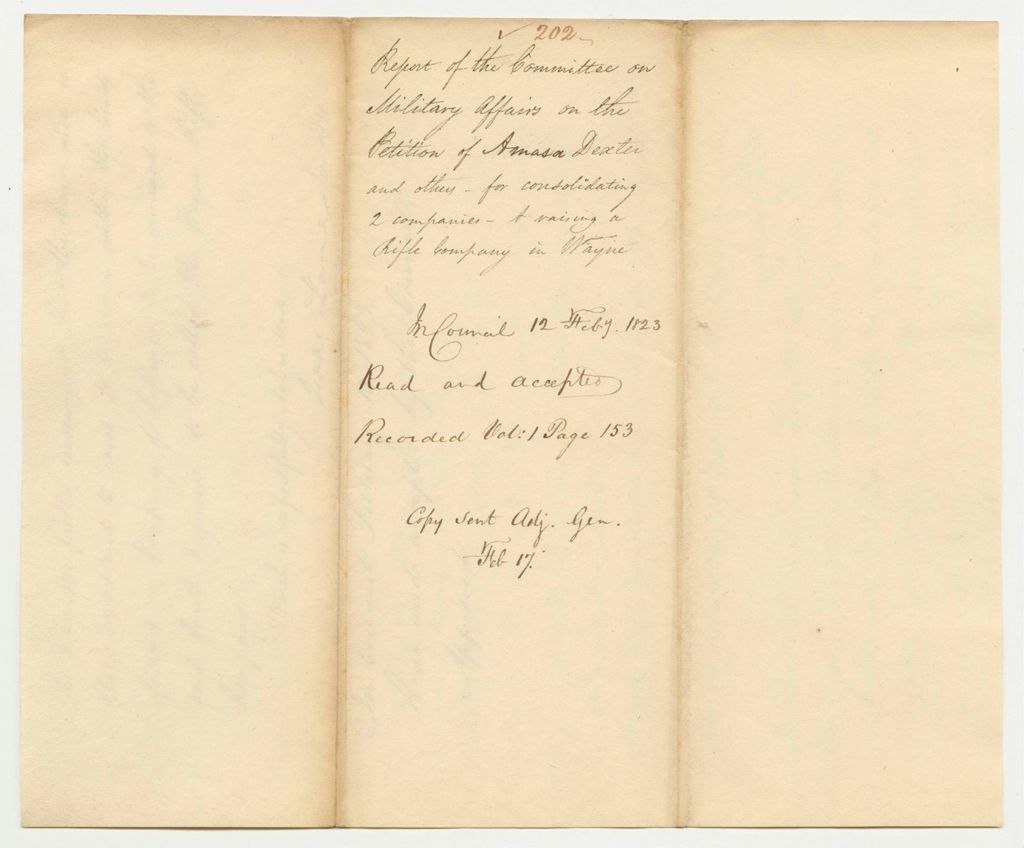 ✓ 202
Report of the Committee on
Military Affairs on the
Petition of Amasa Dexter
and others – for consolidating
2 companies – & raising a
Rifle Company in Wayne
In Council 12 Feby. 1823
Read and accepted
Recorded Vol: 1 Page 153
Copy sent Adj. Gen.
Feb 17.